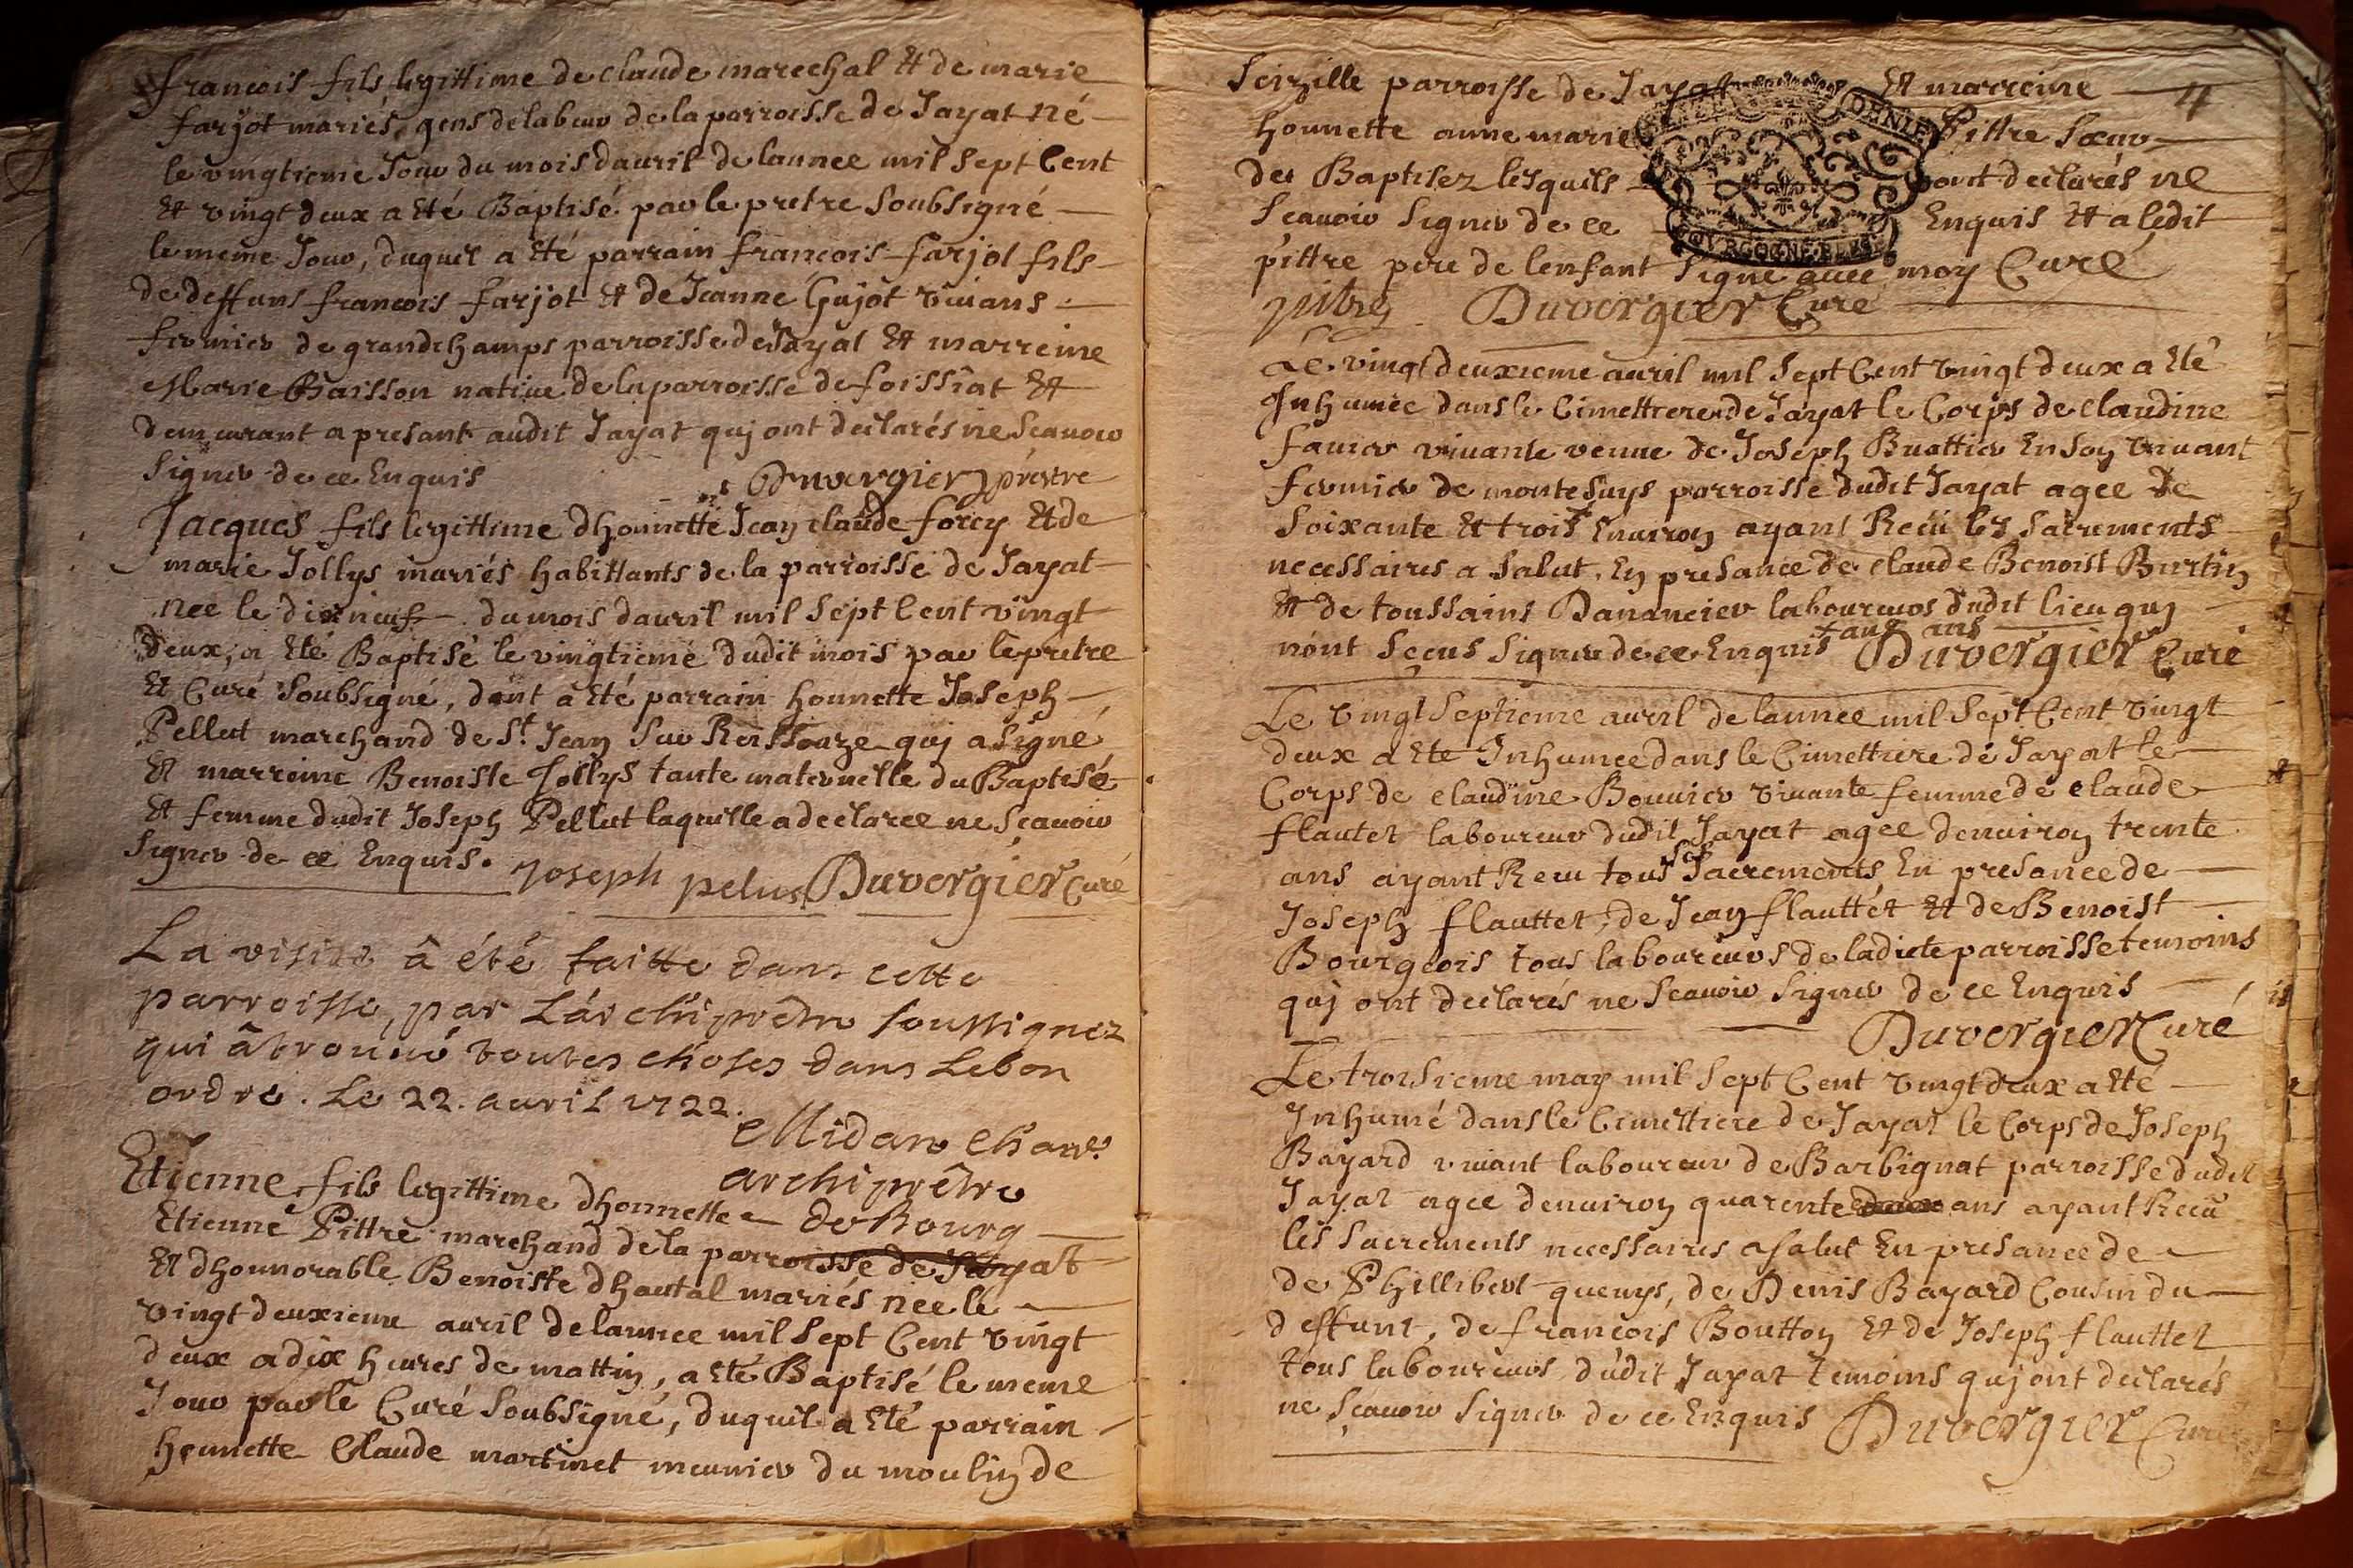 francois fils legittime de claude marechal Et de marie
farjot mariés, gens de labeur de la parroisse de Jayat né
le vingtieme Jour du mois dauril de lannee mil Sept Cent
Et vingt deux a Eté Baptisé par le pretre Soubsigné
le meme Jour, duquel a Eté parrain francois farjot fils
de deffuns francois farjot Et de Jeanne Gujot viuans
fermier de grandchamps parroisse de Jayat Et marreine
Marie Baisson natiue de la parroisse de foissiat Et
demeurant a presant audit Jayat quj ont declarés ne Scauoir
Signer de ce Enquis Duvergier prestre
Jacques fils legittime dhonnette Jean claude forey Et de
marie Jollys mariés habittants de la parroisse de Jayat
nee le dix neuf du mois dauril mil Sept Cent vingt
deux, a Eté Baptisé le vingtieme dudit mois par le pretre
Et Curé Soubsigné, dont a Eté parrain honnette Joseph
Pellut marchand de St. Jean Sur Reissouze quj a Signé
Et marreine Benoiste Jollys tante maternelle du Baptisé
Et femme dudit Joseph Pellut laquelle a declaree ne Scauoir
Signer de ce Enquis. Joseph pelus Duvergier Curé
La visite â été faitte dans cette
parroisse, par L'archiprêtre soussignez
qui â trouué toutes choses dans Lebon
ordre. Le 22. auril 1722.
Midan
archiprêtre
de Bourg
Etienne, fils legittime dhonnette
Etienne Pittre marchand de la parroisse de Jayat
Et dhonnorable Benoiste dhautal mariés nee le
vingt deuxieme auril de lannee mil Sept Cent vingt
deux a dix heures de mattin, a Eté Baptisé le meme
Jour par le Curé Soubsigné, duquel a Eté parrain
honnette Claude martinet meunier du moulin de
4
Seizille parroisse de Jayat Et marreine
honnette anne marie Pittre Sœur
du Baptisez lesquels ont declarés ne
Scauoir Signer de ce Enquis Et a ledit
pittre pere de lenfant Signé auec moy Curé
pitre Duvergier Curé
Le vingt deuxieme auril mil Sept Cent vingt deux a Eté
Inhumée dans le Cimettiere de Jayat le Corps de Claudine
fauier viuante veuue de Joseph Buattier En Son viuant
fermier de montesuys parroisse dudit Jayat agee de
Soixante Et trois Enuiron ayant Receu les Sacrements
necessaires a Salut, En presance de claude Benoist Burtin
Et de toussains Dananciev laboureurs dudit lieu quj
nont Sceus Signer de ce Enquis ans Duvergier Curé
Le vingt Septieme auril de lannee mil Sept Cent vingt
deux a Ete Inhumee dans le Cimettiere de Jayat le
Corps de claudine Bouuier viuante femme de claude
flautet laboureur dudit Jayat agee denuiron trente
ans ayant Receu tous Ses Sacrements En presance de
Joseph flauttet, de Jean flauttet Et de Benoist
Bourgeois tous laboureurs de ladicte parroisse temoins
quj ont declarés ne Scauoir Signer de ce Enquis
Duvergier Curé
Le troisieme may mil Sept Cent vingt deux a Eté
Inhumé dans le Cimettiere de Jayat le Corps de Joseph
Bayard viuant laboureur de Barbignat parroisse dudit
Jayat agee denuiron quarente ans ayant Receu
les Sacrements necessaires a salut En presance de
de Phillibert quenys, de Denis Bayard Cousin du
deffunt, de francois Boutton Et de Joseph flauttet
tous laboureurs dudit Jayat temoins quj ont declarés
ne Scauoir Signer de ce Enquis Duvergier Curé